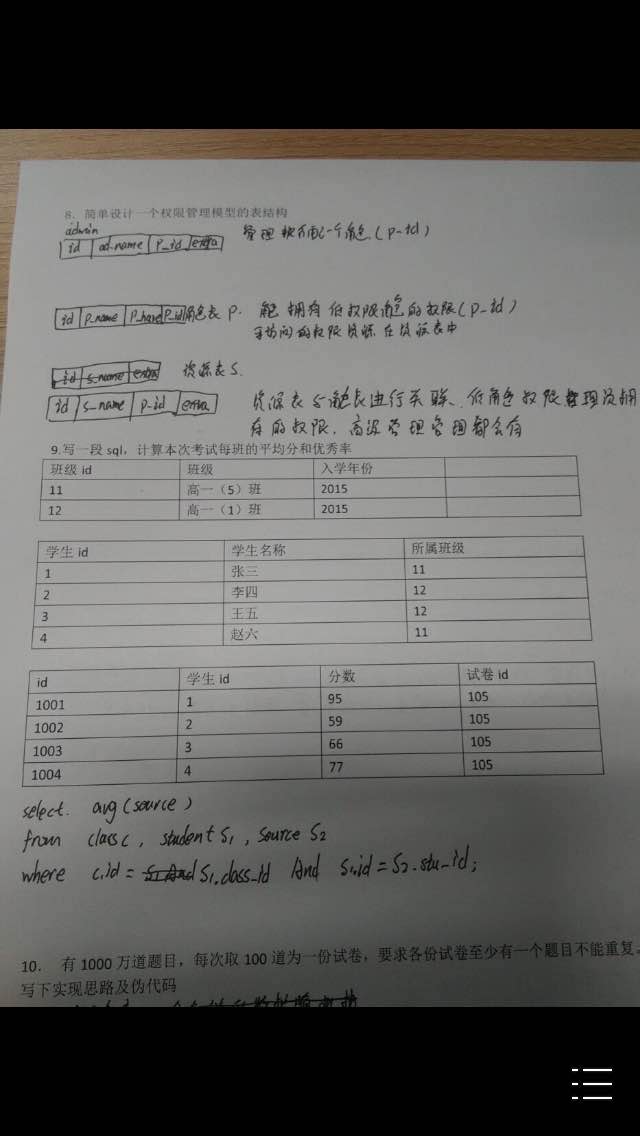 8. 简单设计一个权限管理模型的表结构
admin
id ad-name p_id extra 管理 一个角色 (p-id)
id p_name p_have p_id 角色表 p. 能 拥有 低权限角色的权限 (p_id)
的权限资源 在资源表中
id s_name extra 资源表 s.
id s_name p-id extra 资源表与角色表进行关联、低角色权限管理员拥
有的权限,高级管理 管理都会有
9.写一段 sql,计算本次考试每班的平均分和优秀率
班级 id 班级 入学年份
11 高一(5)班 2015
12 高一(1)班 2015
学生 id 学生名称 所属班级
1 张三 11
2 李四 12
3 王五 12
4 赵六 11
id 学生 id 分数 试卷 id
1001 1 95 105
1002 2 59 105
1003 3 66 105
1004 4 77 105
select. avg(source)
from class c, student s1, source s2
where c.id = s1 And s1.class_id And s1.id = s2.stu_id;
10. 有 1000 万道题目,每次取 100 道为一份试卷,要求各份试卷至少有一个题目不能重复。
写下实现思路及伪代码